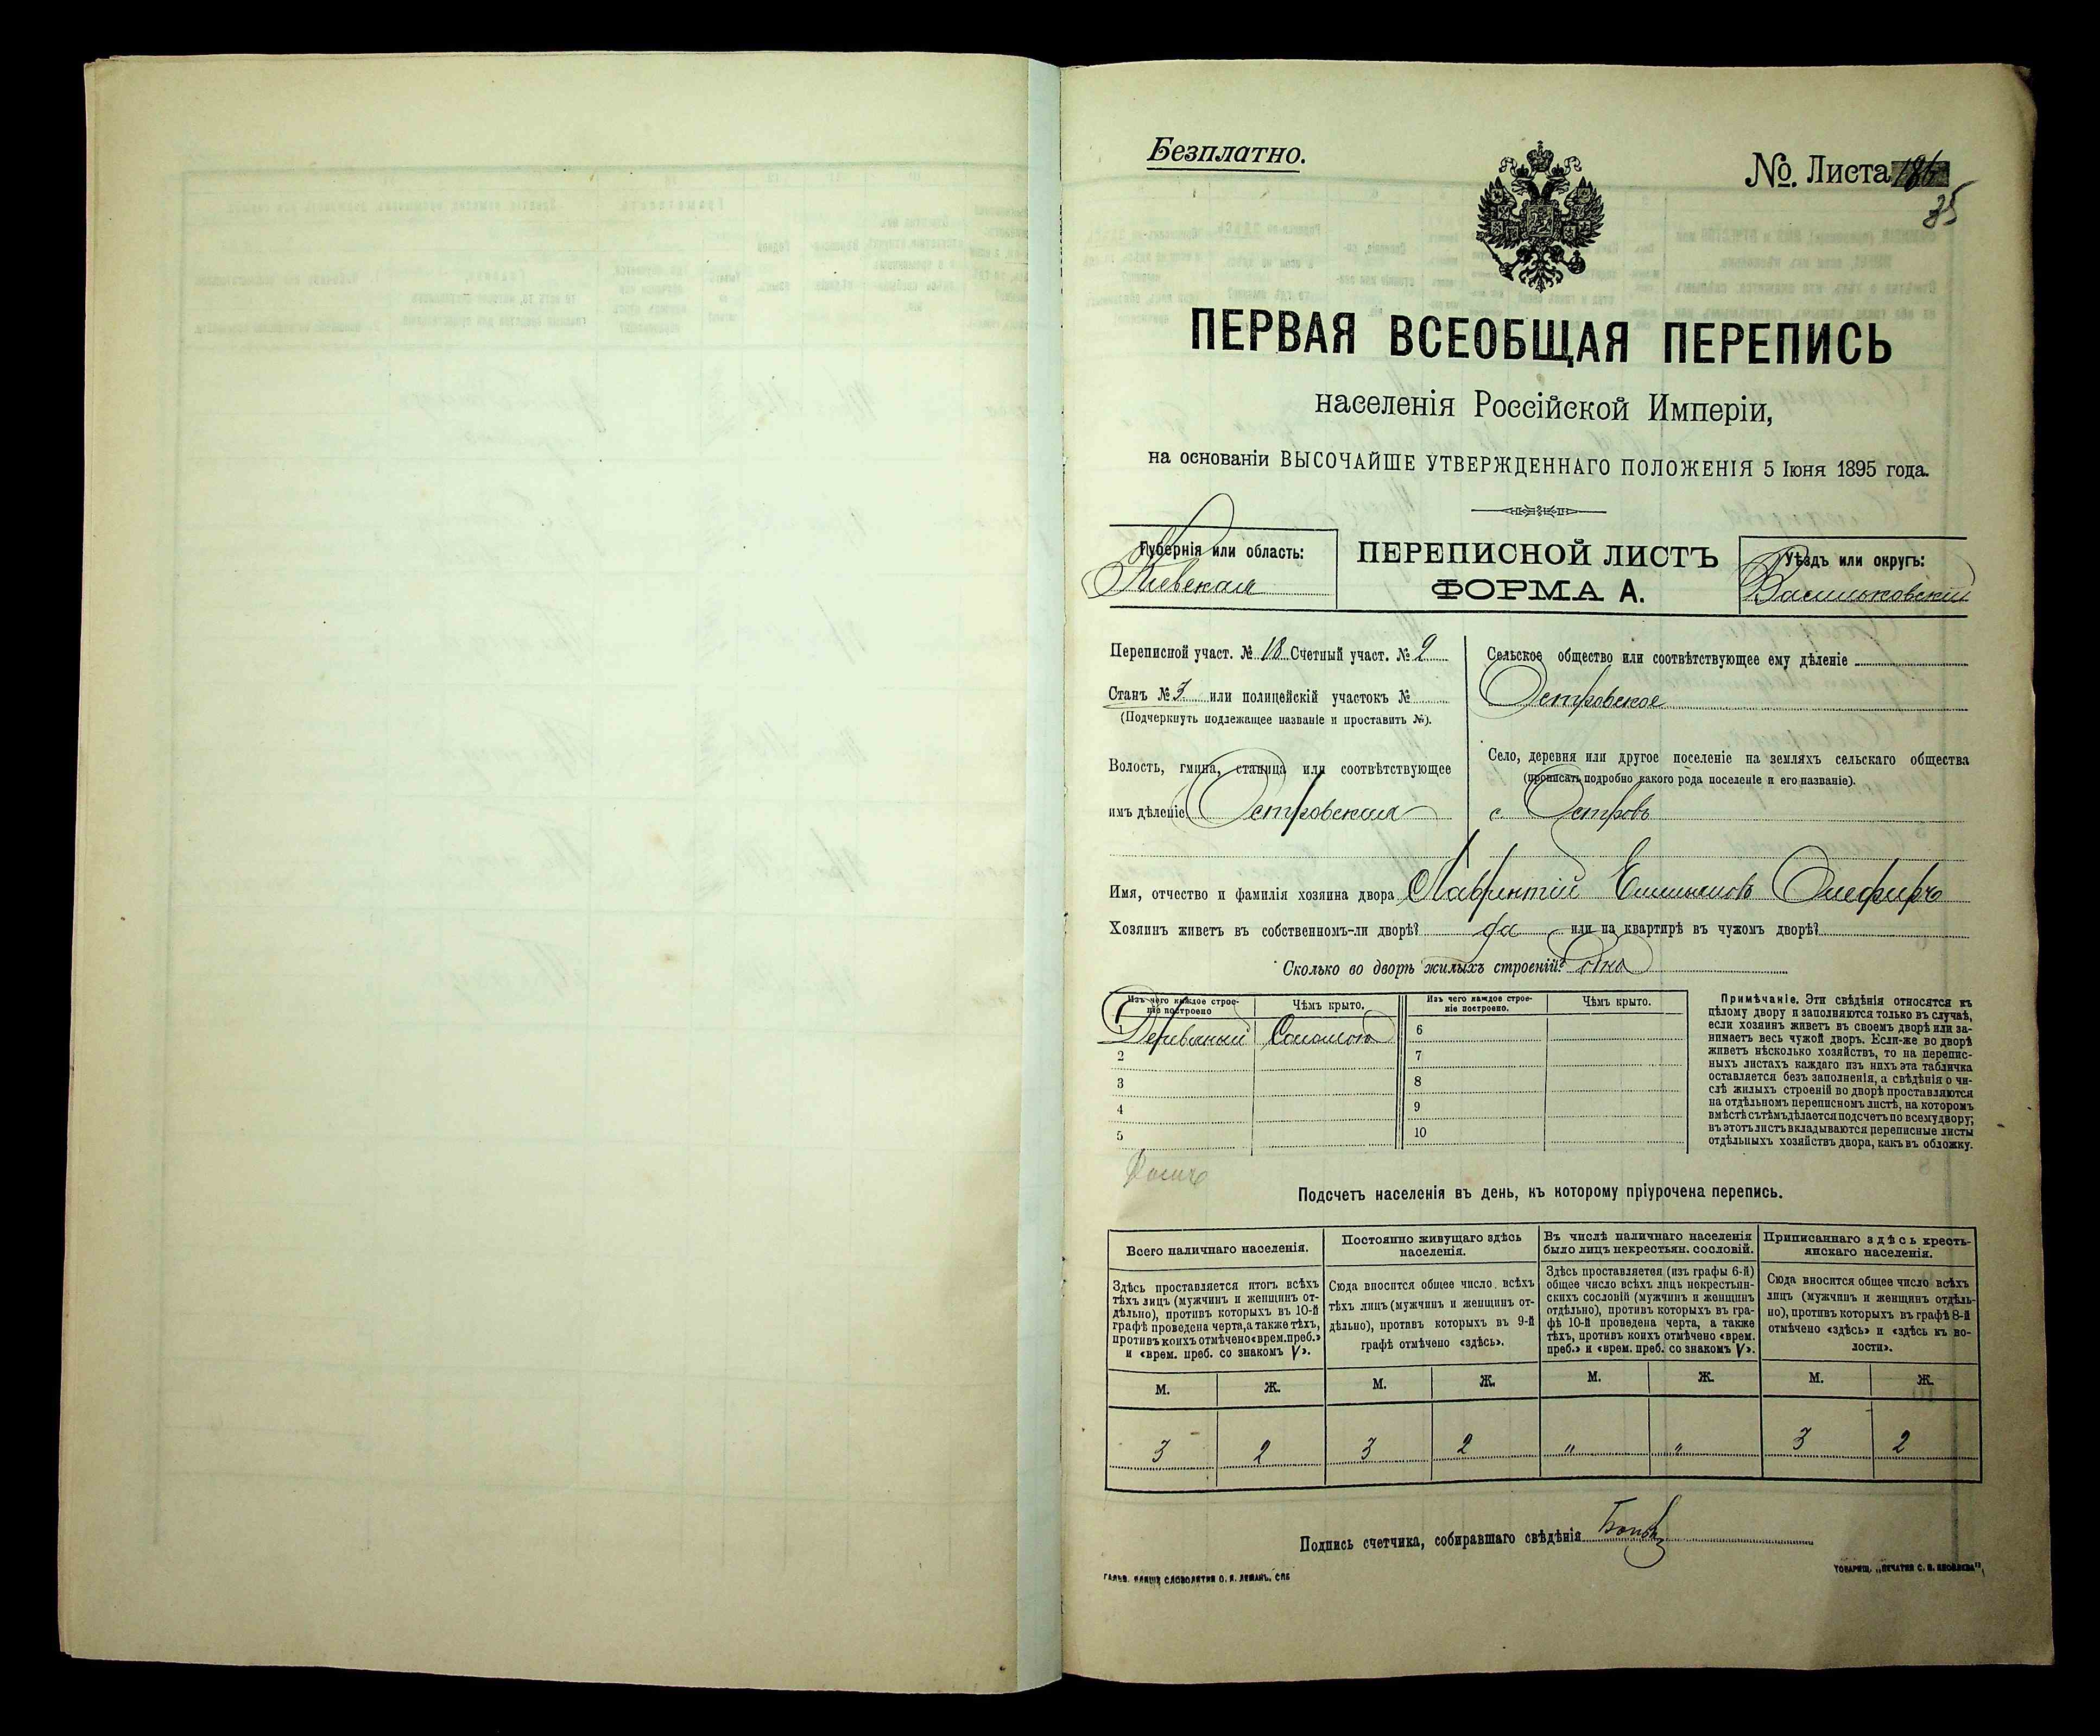 Безплатно.
№. Листа 186
35
ПЕРВАЯ ВСЕОБЩАЯ ПЕРЕПИСЬ
населенія Россійской Имперіи,
на основаніи ВЫСОЧАЙШЕ УТВЕРЖДЕННАГО ПОЛОЖЕНІЯ 5 Іюня 1895 года.
Губернія или область:
Кіевская
ПЕРЕПИСНОЙ ЛИСТЪ
ФОРМА А.
Уѣздъ или округъ:
Васильковскій
Переписной участ. № 18 Счетный участ. № 2
Станъ № 3 или полицейскій участокъ №
(Подчеркнуть подлежащее названіе и проставить №).
Волость, гмина, станица или соотвѣтствующее
имъ дѣленіе Островская
Сельское общество или соотвѣтствующее ему дѣленіе
Островское
Село, деревня или другое поселеніе на земляхъ сельскаго общества
(прописать подробно какого рода поселеніе и его названіе).
с. Островъ
Имя, отчество и фамилія хозяина двора Лаврентій Емельяновъ Олефиръ
Хозяинъ живетъ въ собственномъ-ли дворѣ? да или на квартирѣ въ чужомъ дворѣ?
Сколько во дворѣ жилыхъ строеній? Одно
Изъ чего каждое строе-
ніе построено
Чѣмъ крыто.
Изъ чего каждое строе-
ніе построено.
Чѣмъ крыто.
1 Деревяный Соломою 6
2 7
3 8
4 9
5 10
Примѣчаніе. Эти свѣдѣнія относятся къ
цѣлому двору и заполняются только въ случаѣ,
если хозяинъ живетъ въ своемъ дворѣ или за-
нимаетъ весь чужой дворъ. Если-же во дворѣ
живетъ нѣсколько хозяйствъ, то на перепис-
ныхъ листахъ каждаго изъ нихъ эта табличка
оставляется безъ заполненія, а свѣдѣнія о чи-
слѣ жилыхъ строеній во дворѣ проставляются
на отдѣльномъ переписномъ листѣ, на которомъ
вмѣстѣ съ тѣмъ дѣлается подсчетъ по всему двору;
въ этотъ листъ вкладываются переписные листы
отдѣльныхъ хозяйствъ двора, какъ въ обложку.
Подсчетъ населенія въ день, къ которому пріурочена перепись.
Всего наличнаго населенія.
Постоянно живущаго здѣсь
населенія.
Въ числѣ наличнаго населенія
было лицъ некрестьян. сословій.
Приписаннаго здѣсь кресть-
янскаго населенія.
Здѣсь проставляется итогъ всѣхъ
тѣхъ лицъ (мужчинъ и женщинъ от-
дѣльно), противъ которыхъ въ 10-й
графѣ проведена черта, а также тѣхъ,
противъ коихъ отмѣчено «врем. преб.»
и «врем. преб. со знакомъ V».
Сюда вносится общее число всѣхъ
тѣхъ лицъ (мужчинъ и женщинъ от-
дѣльно), противъ которыхъ въ 9-й
графѣ отмѣчено «здѣсь».
Здѣсь проставляется (изъ графы 6-й)
общее число всѣхъ лицъ некрестьян-
скихъ сословій (мужчинъ и женщинъ
отдѣльно), противъ которыхъ въ гра-
фѣ 10-й проведена черта, а также
тѣхъ, противъ коихъ отмѣчено «врем.
преб.» и «врем. преб. со знакомъ V».
Сюда вносится общее число всѣхъ
лицъ (мужчинъ и женщинъ отдѣль-
но), противъ которыхъ въ графѣ 8-й
отмѣчено «здѣсь» и «здѣсь къ во-
лости».
М. Ж. М. Ж. М. Ж. М. Ж.
3 2 3 2 " " 3 2
Подпись счетчика, собиравшаго свѣдѣнія
ГАЛЬВ. КЛИШЕ СЛОВОЛИТНИ О. И. ЛЕМАНЪ, СПБ
ТОВАРИЩ. „ПЕЧАТНЯ С. П. ЯКОВЛЕВА"